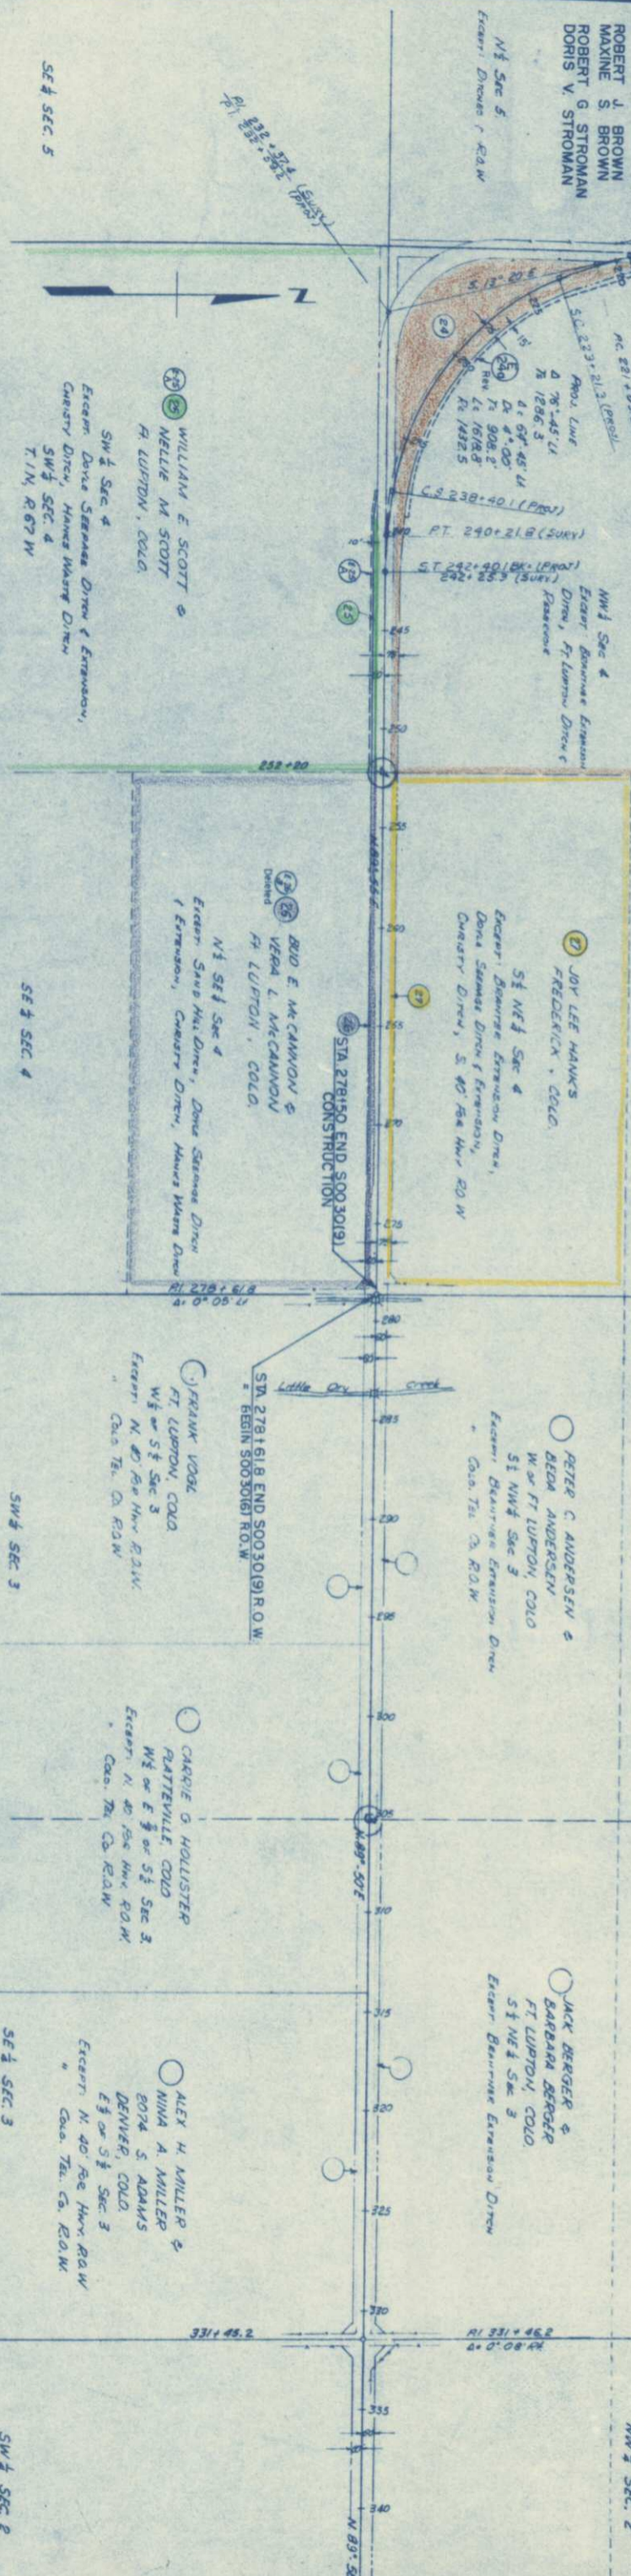 ROBERT J. BROWN
MAXINE S. BROWN
ROBERT G STROMAN
DORIS V. STROMAN
N½ SEC 5
EXCEPT: DITCHES & R.O.W
SE¼ SEC. 5
P.I. 232+37.4 (SURV)
(PROJ)
Z
S 13° 20 E
S.C. 223+21.3 (PROJ)
PROJ. LINE
Δ 76°-45' Lt
Ts 1286.3
Δc 64° 45' Lt
Dc 4°-00'
Tc 908.2'
Lc 1618.8'
Rc 1432.5
Rev.
15'
24
24a
C.S 238+40.1 (PROJ)
P.T. 240+21.8 (SURV)
S.T. 242+40.1 BK. (PROJ)
242+25.9 (SURV.)
NW¼ SEC 4
EXCEPT: BRANTNER EXTENSION
DITCH, FT LUPTON DITCH &
25
WILLIAM E SCOTT &
NELLIE M SCOTT
Ft. LUPTON, COLO.
SW¼ SEC 4
EXCEPT: DOYLE SEEPAGE DITCH & EXTENSION,
CHRISTY DITCH, HANKS WASTE DITCH
SW¼ SEC. 4
T.1N, R.67W
25
245
250
252+20
255
260
265
270
275
27
JOY LEE HANKS
FREDERICK, COLO.
S½ NE¼ SEC 4
EXCEPT: BRANTNER EXTENSION DITCH,
DOYLE SEEPAGE DITCH & EXTENSION,
CHRISTY DITCH, S. 40' FOR HWY R.O.W
27
26
Deleted
BUD E. McCANNON &
VERA L. McCANNON
Ft. LUPTON, COLO.
N½ SE¼ SEC 4
EXCEPT: SAND HILL DITCH, DOYLE SEEPAGE DITCH
& EXTENSION, CHRISTY DITCH, HANKS WASTE DITCH
SE¼ SEC. 4
STA 278+50 END S0030(9)
CONSTRUCTION
P.I. 278+61.8
Δ= 0°05' Lt
280
285
290
295
300
305
310
315
320
325
330
335
340
STA 278+61.8 END S0030(9) R.O.W
" BEGIN S0030(6) R.O.W
Little Dry Creek
PETER C. ANDERSEN &
BEDA ANDERSEN
W. OF FT LUPTON, COLO
S½ NW¼ SEC 3
EXCEPT: BRANTNER EXTENSION DITCH
" COLO. TEL. CO. R.O.W
FRANK VOGL
FT. LUPTON, COLO.
W½ OF S½ SEC 3
EXCEPT: N. 40' FOR HWY R.O.W.
" COLO TEL. CO. R.O.W
SW¼ SEC 3
CARRIE G HOLLISTER
PLATTEVILLE, COLO
W½ OF E½ OF S½ SEC 3.
EXCEPT: N. 40 FOR HWY. R.O.W.
" COLO. TEL. CO R.O.W
N.89°-50'E
JACK BERGER &
BARBARA BERGER
FT. LUPTON, COLO
S½ NE¼ SEC 3
EXCEPT BRANTNER EXTENSION DITCH
ALEX H. MILLER &
NINA A. MILLER
2074 S. ADAMS
DENVER, COLO.
E½ OF S½ SEC 3
EXCEPT: N. 40' FOR HWY. R.O.W
" COLO. TEL. CO. R.O.W.
SE¼ SEC. 3
331+45.2
P.I. 331+46.2
Δ= 0°08' Rt
SW¼ SEC. 2
NW¼ SEC. 2